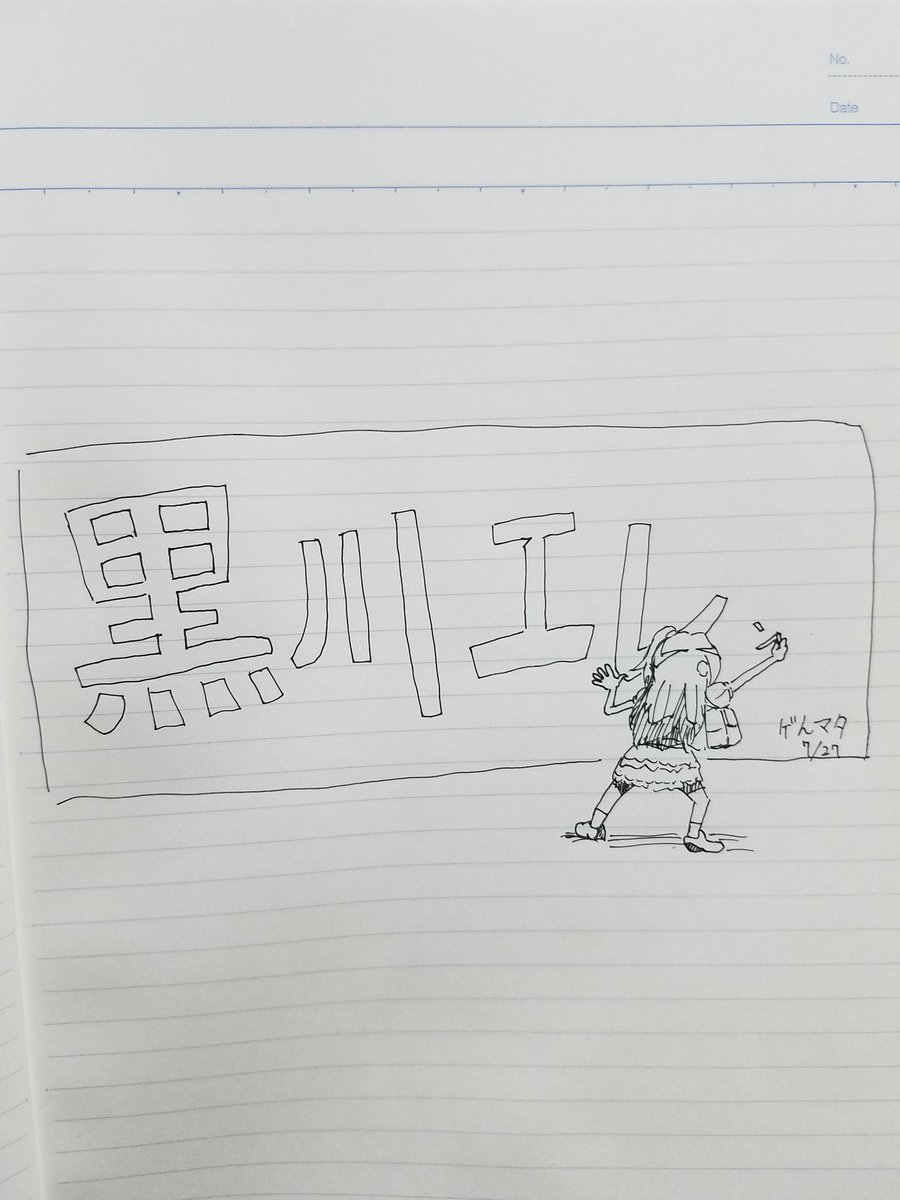 No.
Date
黒川エル
ゲんマタ
7/27